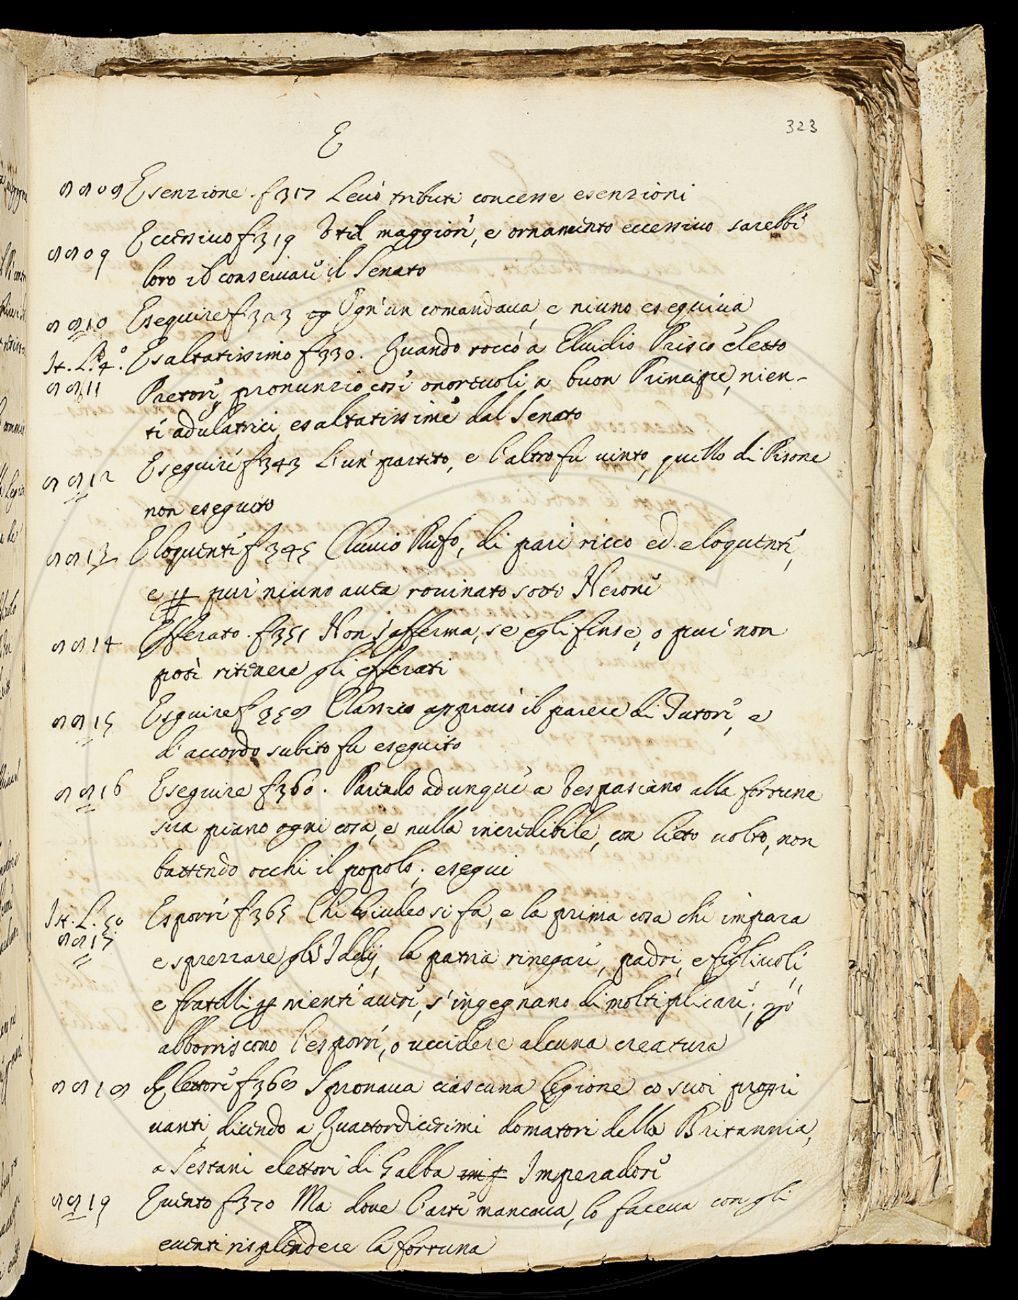 323
E
8808 Esenzione. f 317 Levò tributi concesse esenzioni
8809 Eccessivo f 319 Util maggiore, e ornamento eccessivo sarebbe
loro il conservare il Senato
8810 Eseguire f 323 Ogn'un comandava, e niuno eseguiva
It. L. 4.º Esaltatissimo f 330. Quando toccò a Elvidio Prisco eletto
8811 Pretore, pronunziò cose onorevoli a buon Principe, nien-
te adulatrici, esaltatissime dal Senato
8812 Eseguire f 343 L'un partito, e l'altro fu vinto, quello di Pisone
non eseguito
8813 Eloquente f 345 Cluvio Rufo, di pari ricco ed eloquente,
e pure niuno avea rovinato sotto Nerone
8814 Efferato. f 351 Non s'afferma, se egli finse, o pure non
potè ritenere gli efferati
8815 Esguire f 358 Classico appruovò il parere di Tutore, e
d'accordo subito fu eseguito
8816 Eseguire f 360. Parendo adunque a Vespasiano alla fortuna
sua piano ogni cosa, e nulla incredibile, con lieto volto, non
battendo occhi il popolo, eseguì
It. L. 5º Esporre f 365 Chi Giudeo si fa, e la prima cosa che impara
8817 e sprezzare gl'Iddij, la patria rinegare, padri, e figliuoli,
e fratelli p niente avere, s'ingegnano di moltiplicare, però
abborriscono l'esporre, o uccidere alcuna creatura
8818 Elettore f 368 Spronava ciascuna legione co suoi propri
vanti, dicendo a Quattordicesimi domatori della Britannia,
a Sestani elettori di Galba Imperadore
8819 Evento f 370 Ma dove l'arte mancava, lo faceva con gli
eventi risplendere la fortuna